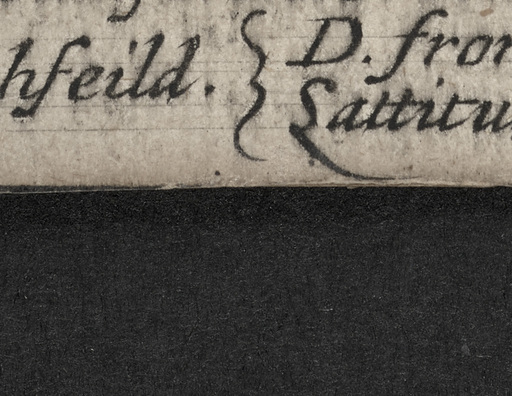 hfeild. } D. from
Lattitu